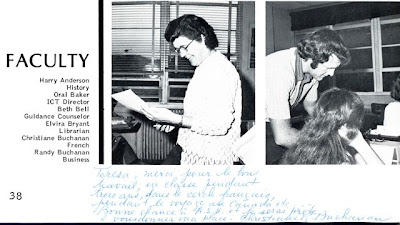 FACULTY
Harry Anderson
History
Oral Baker
ICT Director
Beth Bell
Guidance Counselor
Elvira Bryant
Librarian
Christiane Buchanan
French
Randy Buchanan
Business
38
Teresa, merci pour le bon
travail, en classe pendant
trois ans, dans le cercle français,
pendant le voyage au Canada etc...
Bonne chance à
place. Christiane Buchanan